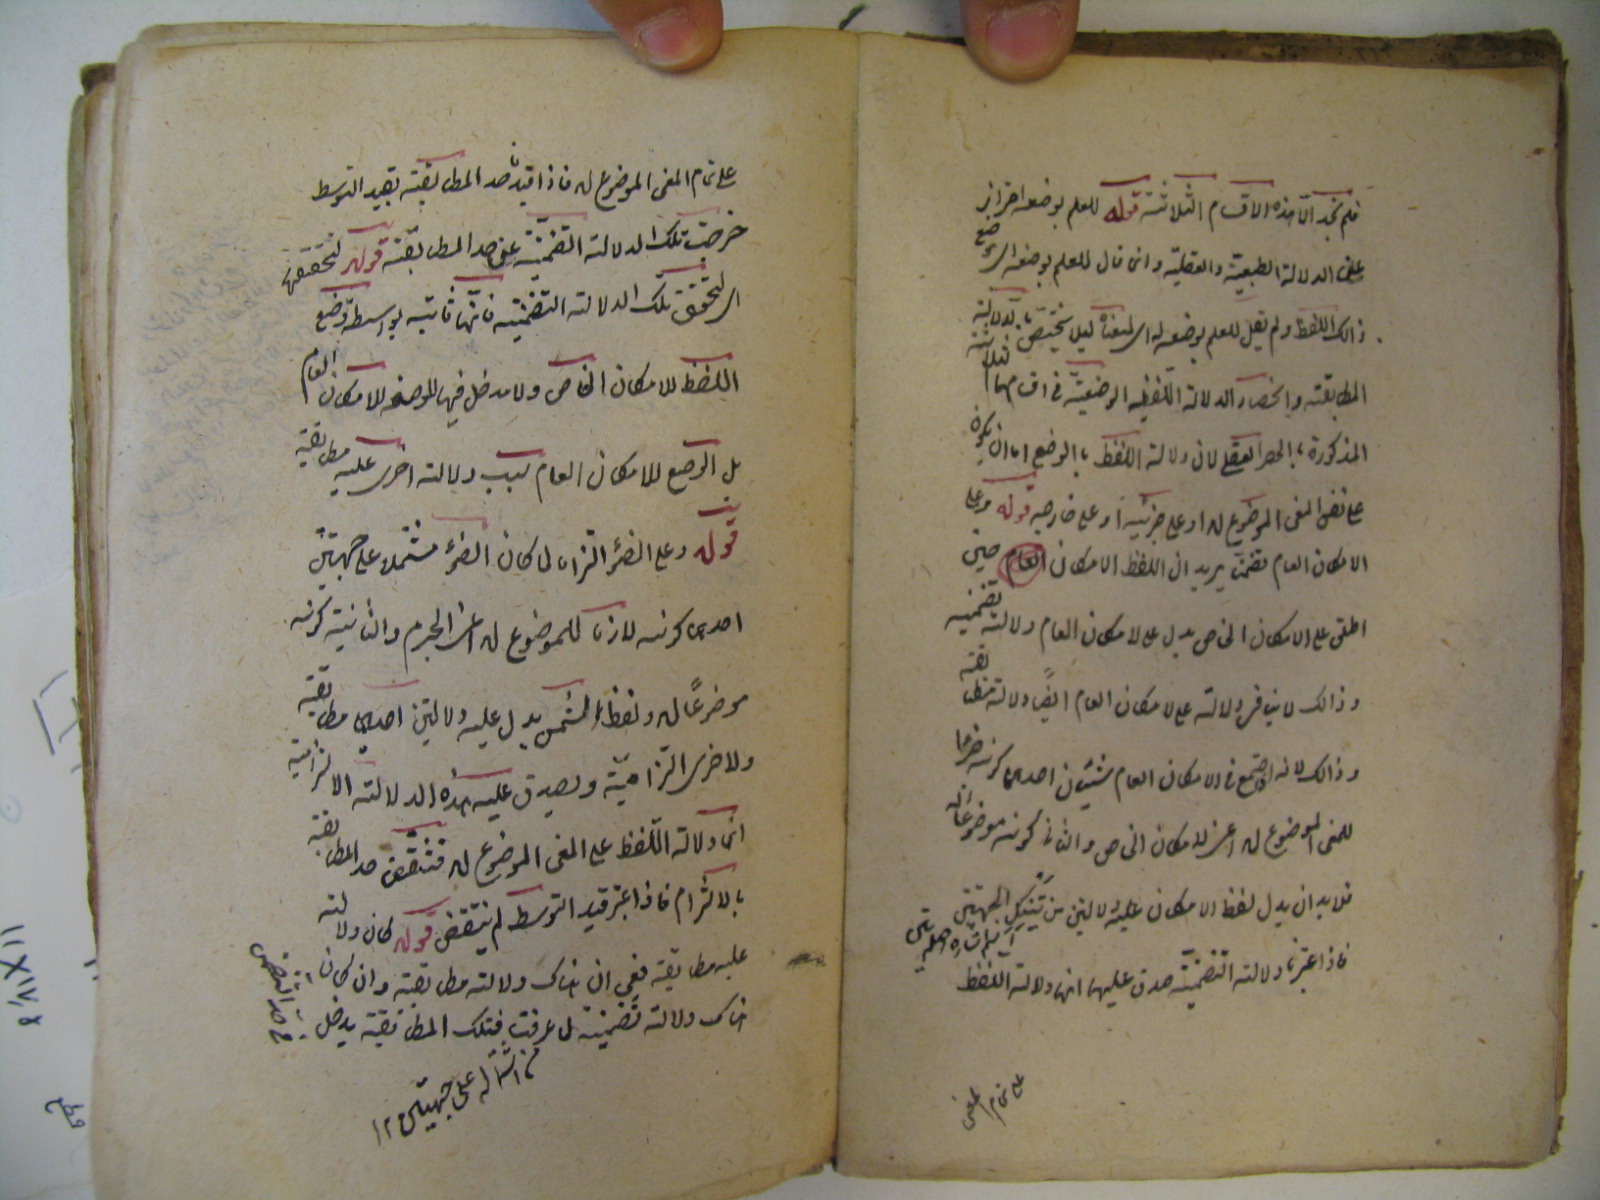 فلم نجد الا هذه الاقسام الثلاثة قوله للعلم بوضعه احتراز
عن الدلالة الطبعية والعقلية وانما قال للعلم بوضعه اى وضع
ذالك اللفظ ولم يقل للعلم بوضعه له اى لمعناه ليلا يختص بالدلالة
المطابقة وانحصار الدلالة اللفظية الوضعية فى اقسامها الثلاثة
المذكورة بالحصر العقلى لان دلالة اللفظ بالوضع اما ان يكون
على نفس المعنى الموضوع له او على جزئيه او على خارجيه قوله وعلى
الامكان العام تضمنا يريد ان اللفظ الامكان العام حين
اطلق على الامكان الخاص يدل على لامكان العام دلالة تضمنية
وذالك لا ينافى دلالته على لامكان العام ايضا دلالة مطابقة
وذالك لانه اجتمع فى الامكان العام شيئان احدى كونه جزءا
للمعنى الموضوع له اعنى للامكان الخاص والثانى كونه موضوعا له
فلا بد ان يدل لفظ الامكان عليه دلالتين من تينك الجهتين
فاذا اعتبرنا دلالته التضمنية صدق عليها انها دلالة اللفظ
على تمام المعنى
على تمام المعنى الموضوع له فاذا قيد حد المطابقة بقيد التوسط
خرجت تلك الدلالة التضمنية عن حد المطابقة قوله لتحققها
اى لتحقق تلك الدلالة التضمنية فانها ثابتة بواسطة وضع
اللفظ للامكان الخاص ولا مدخل فيها للوضعه للامكان العام
بل الوضع للامكان العام سبب دلالة اخرى عليه مطابقة
قوله وعلى الضوء التزاما لما كان الضوء مشتملا على جهتين
احدى كونه لازما للموضوع له اعنى الجرم والثانية كونه
موضوعا له ولفظ الشمس يدل عليه دلالتين احدى مطابقية
ولاخرى التزامية ويصدق عليه هذه الدلالة الالتزامية
انها دلالة اللفظ على المعنى الموضوع له فتنتقض حد المطابقة
بالالتزام فاذا اعتبر قيد التوسط لم ينتقض قوله كان دلالته
عليه مطابقة فهى ان هناك دلالة مطابقة وان كان
هناك دلالة تضمنية لما عرفت فتلك المطابقة يدخل
فى حد التضمن
من اشتماله على جهتين ١٢